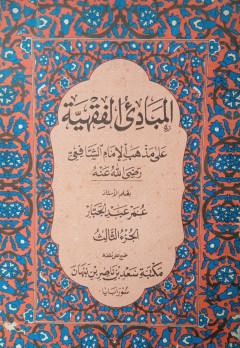 المبادئ الفقهية
على مذهب الإمام الشافعي
رضي الله عنه
بقلم الأستاذ
عمر عبد الجبار
الجزء الثالث
مكتبة سعد بن ناصر بن نبهان
سورابايا